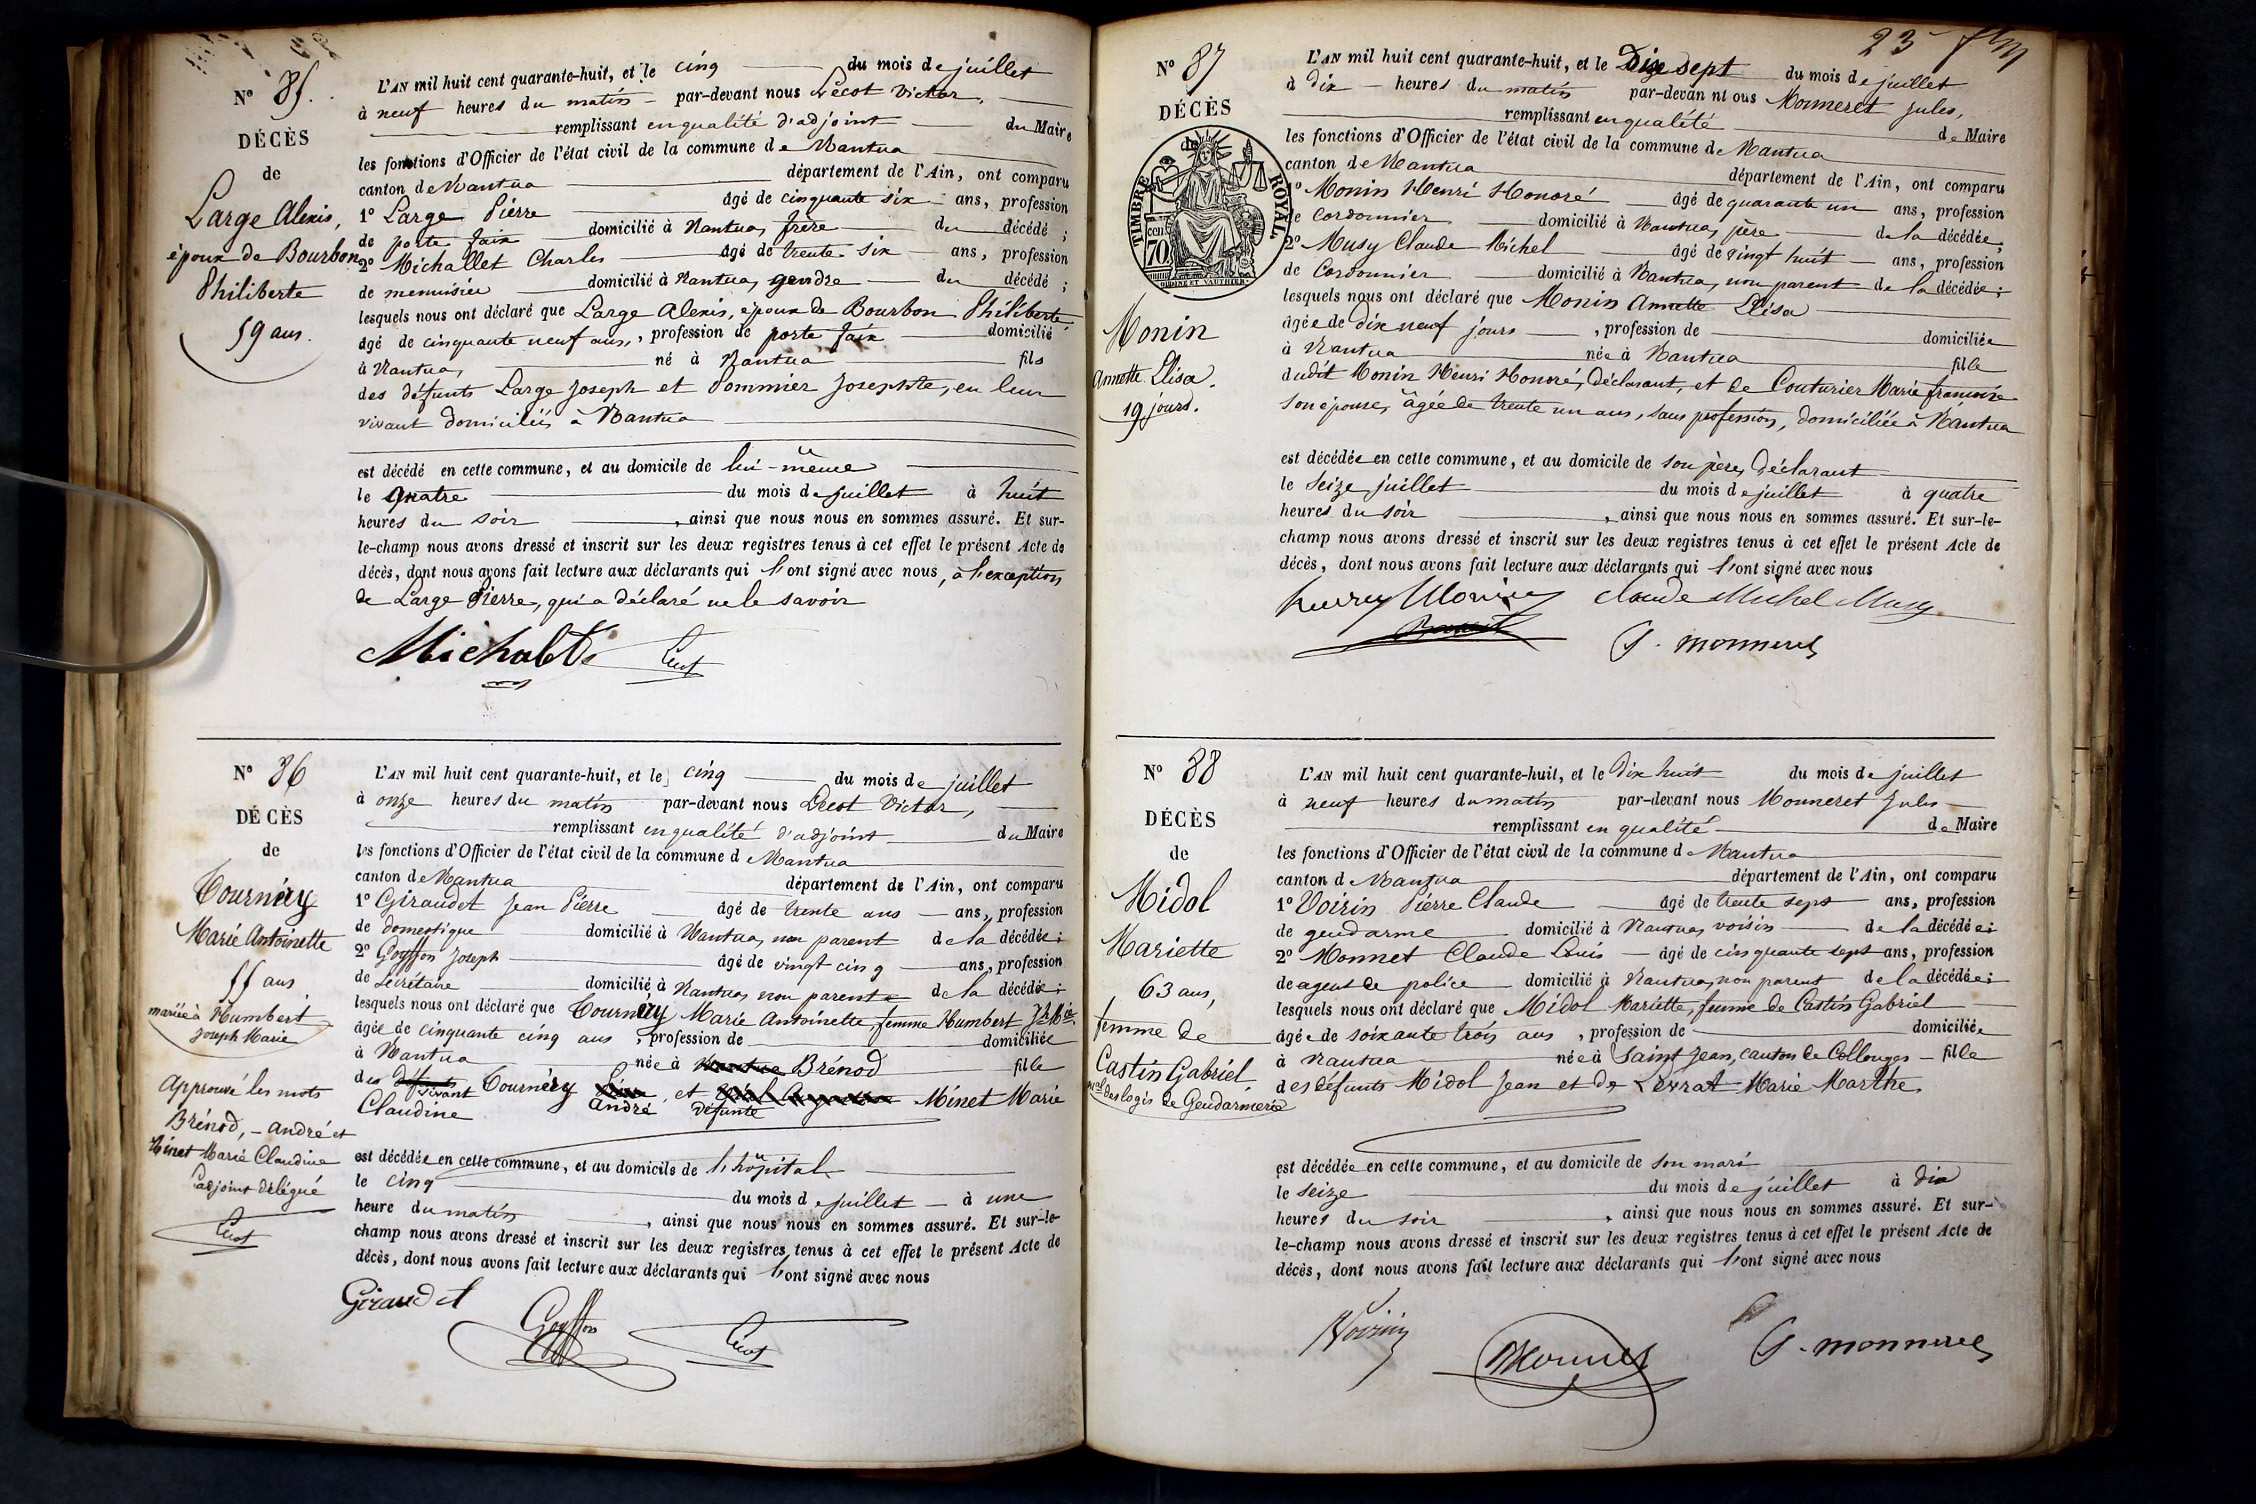 N° 85.
DÉCÈS
de
Large Alexis,
époux de Bourbon
Philiberte
59 ans.
L'AN mil huit cent quarante-huit, et le cinq du mois de juillet
à neuf heures du matin par-devant nous Lécot Victor,
remplissant en qualité d'adjoint du Maire
les fonctions d'Officier de l'état civil de la commune de Nantua
canton de Nantua département de l'Ain, ont comparu
1° Large Pierre âgé de cinquante six ans, profession
de porte faix domicilié à Nantua, frère du décédé ;
2° Michallet Charles âgé de trente six ans, profession
de menuisier domicilié à Nantua, gendre du décédé ;
lesquels nous ont déclaré que Large Alexis, époux de Bourbon Philiberte
âgé de cinquante neuf ans, profession de porte faix domicilié
à Nantua, né à Nantua fils
des défunts Large Joseph et Pommier Josephte, en leur
vivant domiciliés à Nantua
est décédé en cette commune, et au domicile de lui-même
le quatre du mois de juillet à huit
heures du soir, ainsi que nous nous en sommes assuré. Et sur-
le-champ nous avons dressé et inscrit sur les deux registres tenus à cet effet le présent Acte de
décès, dont nous avons fait lecture aux déclarants qui l'ont signé avec nous, à l'exception
de Large Pierre, qui a déclaré ne le savoir
Michallet Lécot
N° 86
DÉCÈS
de
Tournéry
Marie Antoinette
55 ans
mariée à Humbert
Joseph Marie
Approuvé les mots
Brénod, - André et
Minet Marie Claudine
L'adjoint délégué
Lécot
L'AN mil huit cent quarante-huit, et le cinq du mois de juillet
à onze heures du matin par-devant nous Lécot Victor,
remplissant en qualité d'adjoint du Maire
les fonctions d'Officier de l'état civil de la commune de Nantua
canton de Nantua département de l'Ain, ont comparu
1° Giraudet Jean Pierre âgé de trente ans ans, profession
de domestique domicilié à Nantua, non parent de la décédée ;
2° Goyffon Joseph âgé de vingt cinq ans, profession
de Secrétaire domicilié à Nantua, non parent de la décédée ;
lesquels nous ont déclaré que Tournéry Marie Antoinette, femme Humbert Jh Mie
âgée de cinquante cinq ans, profession de domiciliée
à Nantua née à Nantua Brénod fille
des défunts Tournéry et Minet Marie
vivant André défunte
Claudine
est décédée en cette commune, et au domicile de l'hôpital
le cinq du mois de juillet à une
heure du matin, ainsi que nous nous en sommes assuré. Et sur-le-
champ nous avons dressé et inscrit sur les deux registres tenus à cet effet le présent Acte de
décès, dont nous avons fait lecture aux déclarants qui l'ont signé avec nous
Giraudet Goyffon Lécot
23
N° 87
DÉCÈS
de
TIMBRE ROYAL
70 cen
Monin
Annette Elisa.
19 jours.
L'AN mil huit cent quarante-huit, et le Dix sept du mois de juillet
à dix heures du matin par-devan nt ous Monneret Jules,
remplissant en qualité de Maire
les fonctions d'Officier de l'état civil de la commune de Nantua
canton de Nantua département de l'Ain, ont comparu
1° Monin Henri Honoré âgé de quarante un ans, profession
de Cordonnier domicilié à Nantua, père de la décédée ;
2° Musy Claude Michel âgé de vingt huit ans, profession
de Cordonnier domicilié à Nantua, non parent de la décédée ;
lesquels nous ont déclaré que Monin Annette Elisa
âgée de dix neuf jours, profession de domiciliée
à Nantua née à Nantua fille
dudit Monin Henri Honoré, Déclarant, et de Couturier Marie françoise
son épouse, âgée de trente un ans, sans profession, domiciliée à Nantua
est décédée en cette commune, et au domicile de son père, déclarant
le seize juillet du mois de juillet à quatre
heures du soir, ainsi que nous nous en sommes assuré. Et sur-le-
champ nous avons dressé et inscrit sur les deux registres tenus à cet effet le présent Acte de
décès, dont nous avons fait lecture aux déclarants qui l'ont signé avec nous
henry Monin Claude Michel Musy
J. monneret
N° 88
DÉCÈS
de
Midol
Mariette
63 ans,
femme de
Castin Gabriel,
mal des logis de Gendarmerie
L'AN mil huit cent quarante-huit, et le dix huit du mois de juillet
à neuf heures du matin par-devant nous Monneret Jules
remplissant en qualité de Maire
les fonctions d'Officier de l'état civil de la commune de Nantua
canton de Nantua département de l'Ain, ont comparu
1° Voirin Pierre Claude âgé de trente sept ans, profession
de gendarme domicilié à Nantua, voisin de la décédée ;
2° Monnet Claude Louis âgé de cinquante sept ans, profession
de agent de police domicilié à Nantua, non parent de la décédée ;
lesquels nous ont déclaré que Midol Mariette, femme de Castin Gabriel
âgée de soixante trois ans, profession de domiciliée
à Nantua née à Saint Jean, canton de Collonges fille
des défunts Midol Jean et de Levrat Marie Marthe
est décédée en cette commune, et au domicile de son mari
le seize du mois de juillet à dix
heures du soir, ainsi que nous nous en sommes assuré. Et sur-
le-champ nous avons dressé et inscrit sur les deux registres tenus à cet effet le présent Acte de
décès, dont nous avons fait lecture aux déclarants qui l'ont signé avec nous
Voirin Monnet J. monneret